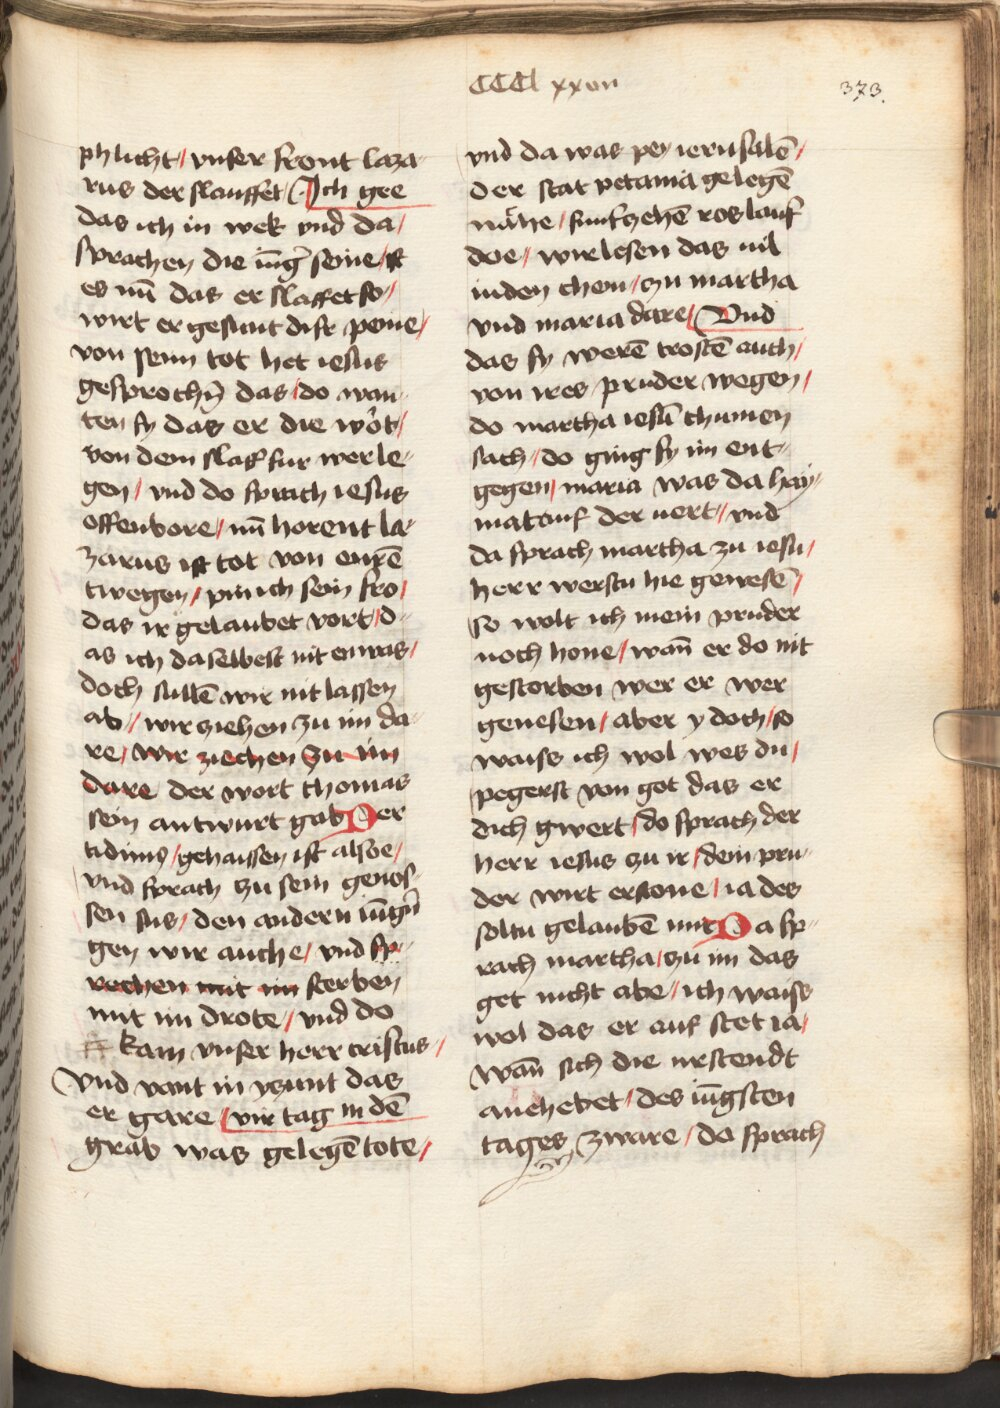 CCCl xxiii
373.
phlicht / vnser front laza-
rus der slauffet Ich gee
das ich in wek vnd da /
sprachen die iūg̃ seine / ist
es nū das er slaffet so /
wirt er gesunt disr peine /
von seim tot het iesus
gesprochñ das / do wan-
ten sy das er die wo᷄rt /
von dem slaf fur werle-
gen / vnd do sprach iesus
offenbore / nū horent la-
zarus ist tot von eurē
twegen / pin ich sein fro /
das ir gelaubet vort / d-
as ich daselbest nit enwas /
doch sullē wir nit lassen
ab / wir ziehen zu im da-
re / wir ziechen zu im
dare der wort thomas
sein antwurt gab Der
tidimus / gehaissen ist alsoe /
vnd sprach zu sein genos-
sen sus / den andern iūgñ
gen wir auche / vnd sp-
rechen mit im sterben
mit im drote / vnd do
kam vnser herr cristus /
Vnd vant in yzunt das
er gare / vir tag in dē
grab was gelegē tote /
vnd da was pey ierusalē /
der stat petania gelegē
nahe / funfzehē roslauf
doe / wir lesen das uil
iuden chom / zu martha
vnd maria dare / Vnd
das sy werē trostē auch /
von ires pruder wegen /
do martha iesū chumen
sach / do ging sy im ent-
gegen / maria was da hay-
mat auf der uert / vnd
da sprach martha zu iesu /
herr werstu hie gewesē /
so wolt ich mein pruder
noch hone / wañ er do nit
gestorben wer er wer
genesen / aber y doch / so
waiss ich wol wes du /
pegerst von got das er
dich gwert / do sprach der
herr iesus zu ir / dem pru-
der wirt erstone / ia des
soltu gelaubē mir Da sp-
rach martha / zu im das
get nicht abe / ich waiss
wol das er auf stet ia /
wañ sich die urstendt
anehebet / des iūgsten
tages zware / do sprach